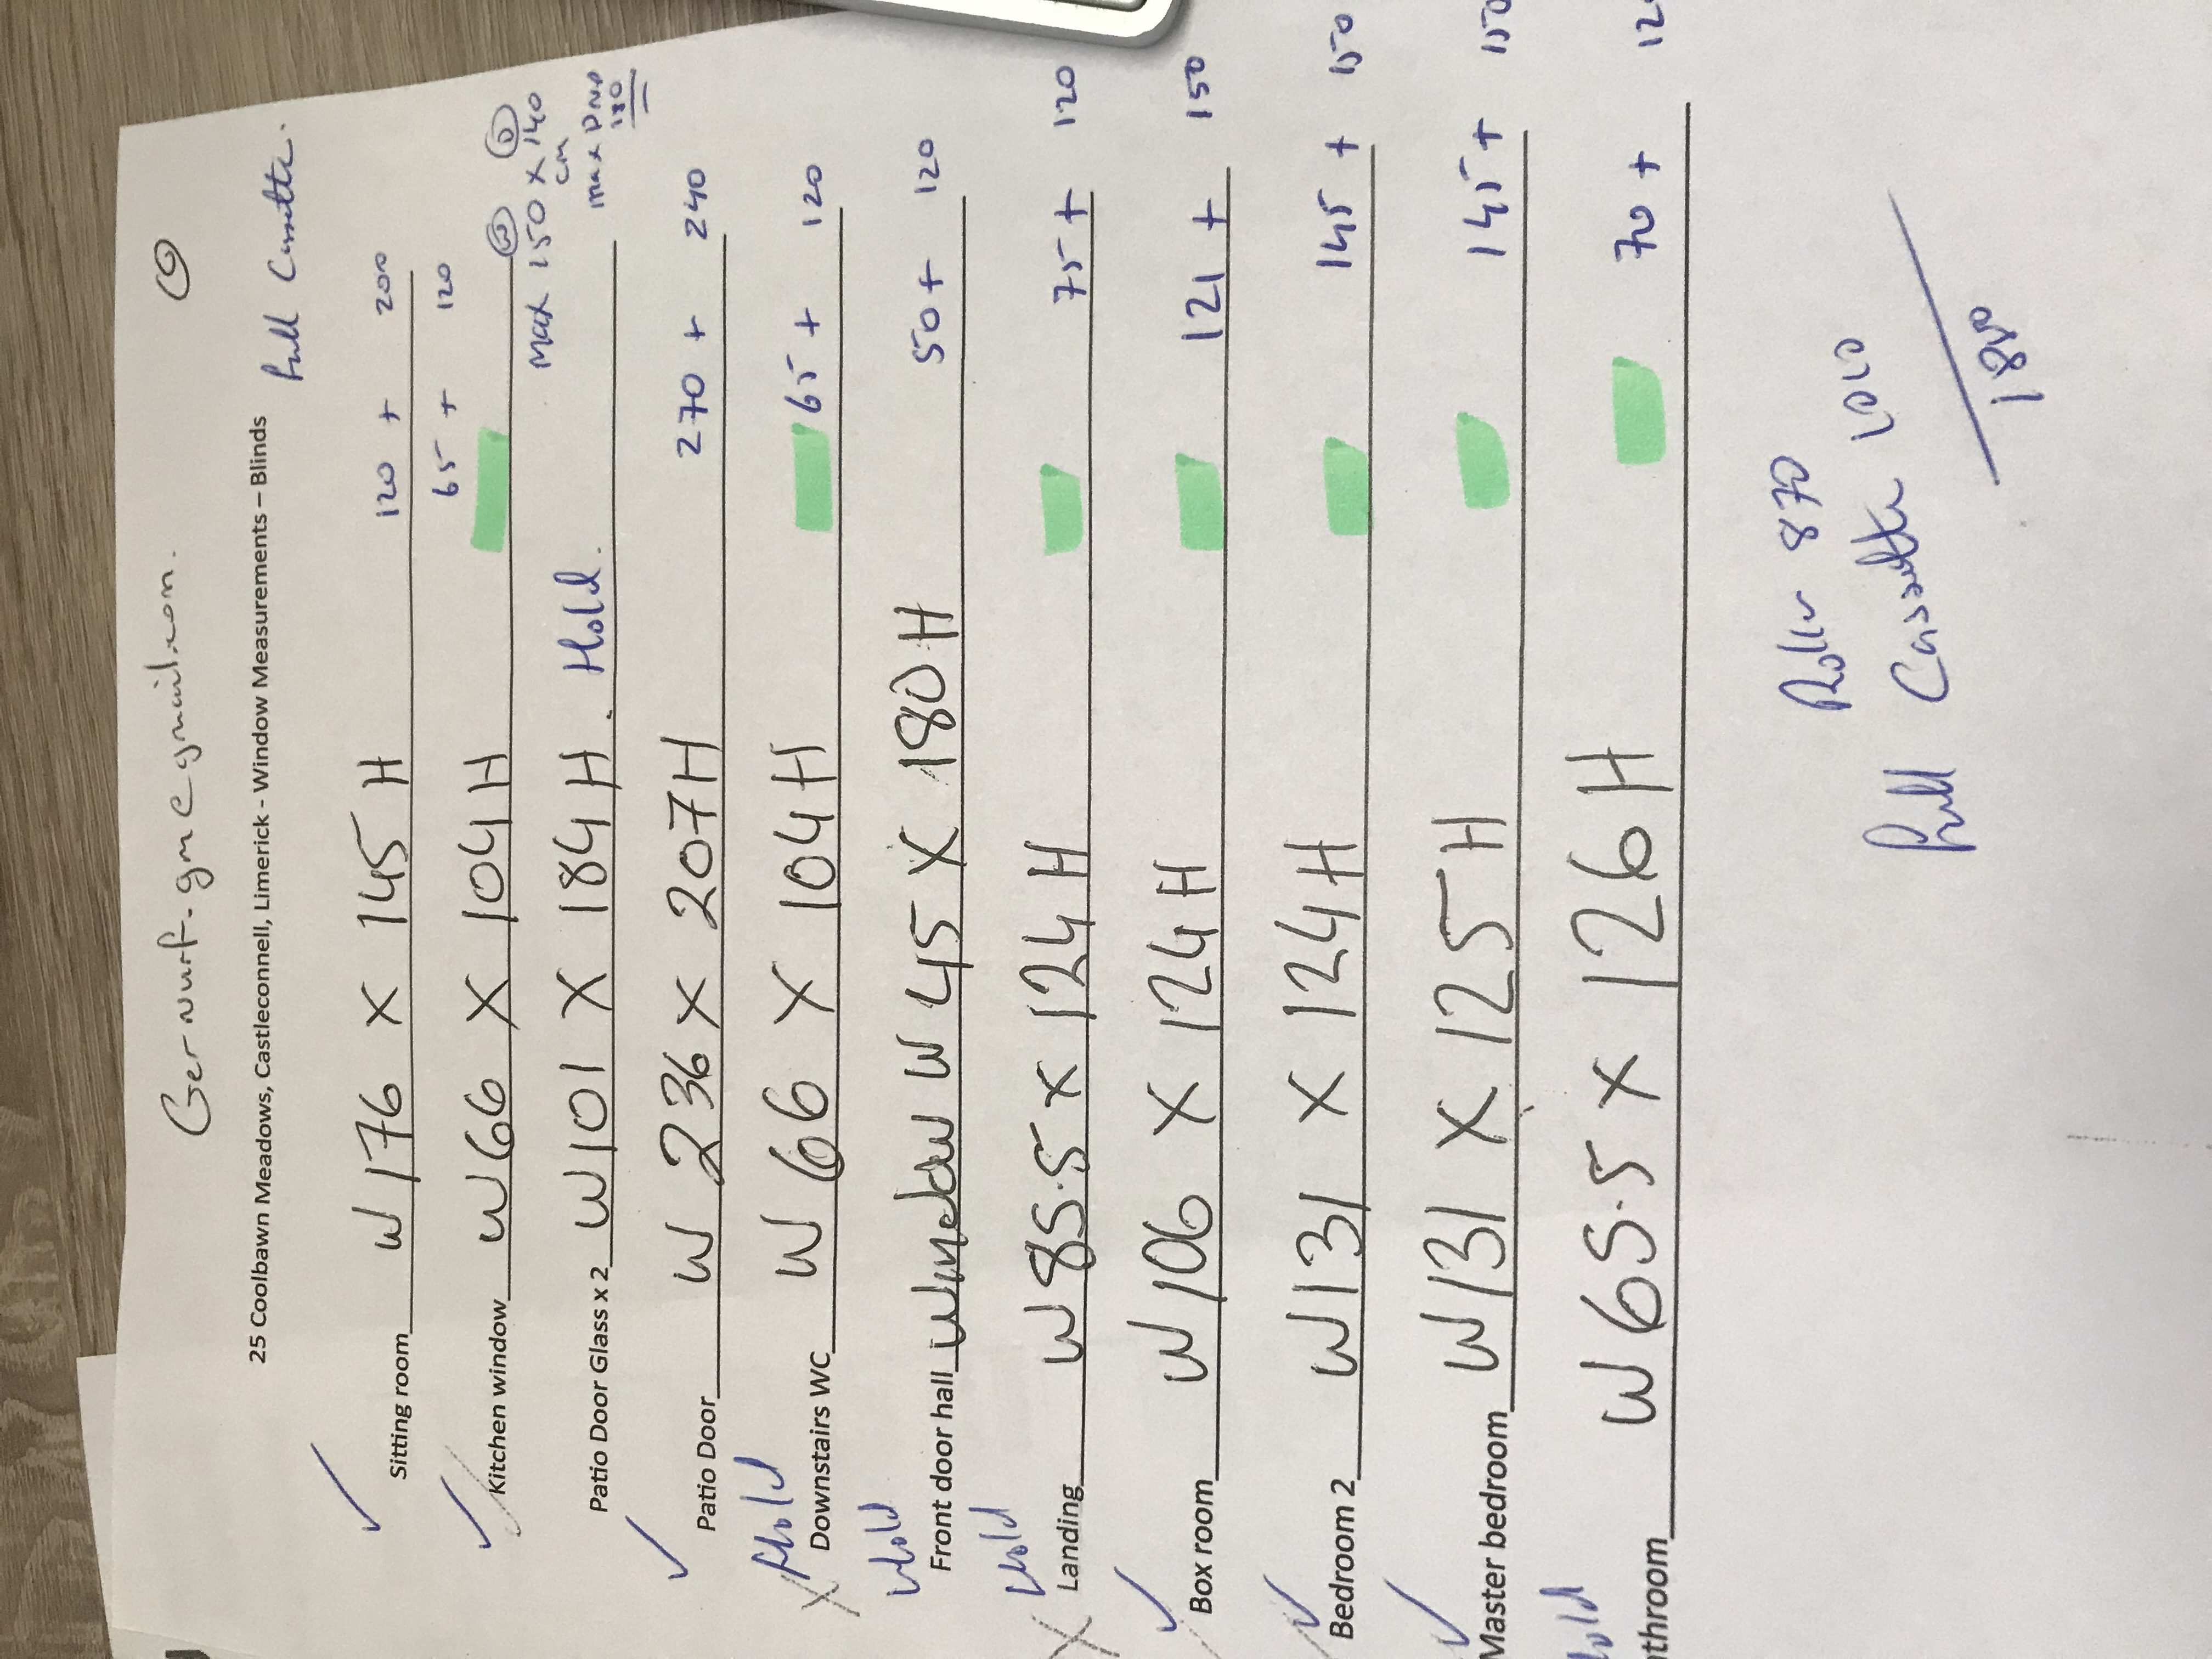 25 Coolbawn Meadows, Castleconnell, Limerick - Window Measurements – Blinds
Full Cassette.
Sitting room W 176 X 145 H 120 + 200
Kitchen window W 66 X 104 H 65 + 120
max 150 x 140
cm
W D
max Drop
180
Patio Door Glass x 2 W 101 X 184 H. Hold.
Patio Door W 236 X 207 H 270 + 240
Hold
Downstairs WC W 66 X 104 H 65 + 120
Hold
Front door hall Window W 45 X 180 H 50 + 120
Hold
Landing W 85.5 X 124 H 75 + 120
Box room W 106 X 124 H 121 + 150
Bedroom 2 W 131 X 124 H 145 + 150
Master bedroom W 131 X 125 H 145 + 150
throom W 65.5 X 126 H 70 + 12
Roller 870
Full Cassette 1010